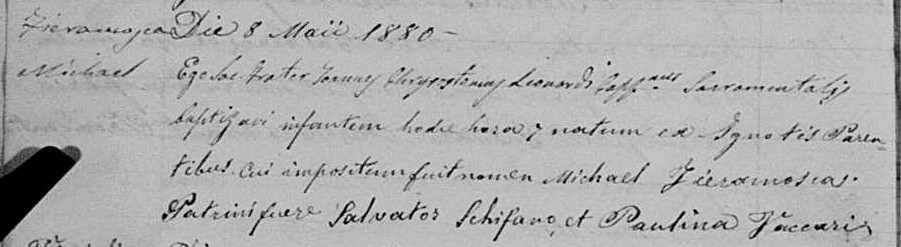 Fieramosca Die 8 Maii 1880 -
Michael Ego Sac. Frater Joannes Chrysostomus Leonardi Capp.nus Sacramentalis
baptizavi infantem hodie hora 7 natum ex Ignotis Paren=
tibus. Cui impositum fuit nomen Michael Fieramosca.
Patrini fuere Salvator Schifano, et Paulina Vaccari